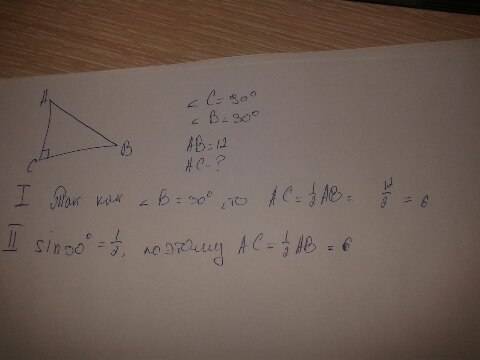 A
C
B
∠ C = 90°
∠ B = 30°
AB = 12
AC - ?
I Так как ∠ B = 30°, то AC = 1/2 AB = 12/2 = 6
II sin30° = 1/2, поэтому AC = 1/2 AB = 6